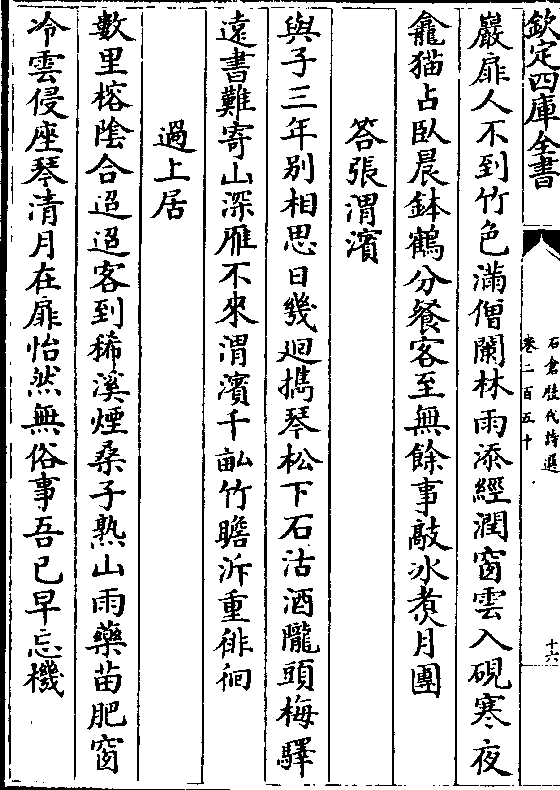 欽定四庫全書
石倉歷代詩選
卷二百五十
十六
巖扉人不到竹色滿僧闌林雨添經潤窗雲入硯寒夜
龕猫占臥晨鉢鶴分餐客至無餘事敲冰煮月團
答張渭濱
與子三年别相思日幾迴擕琴松下石沽酒隴頭梅驛
遠書難寄山深雁不來渭濱千畝竹瞻泝重徘徊
過上居
數里榕陰合迢迢客到稀溪煙桑子熟山雨藥苗肥窗
冷雲侵座琴清月在扉怡然無俗事吾已早忘機